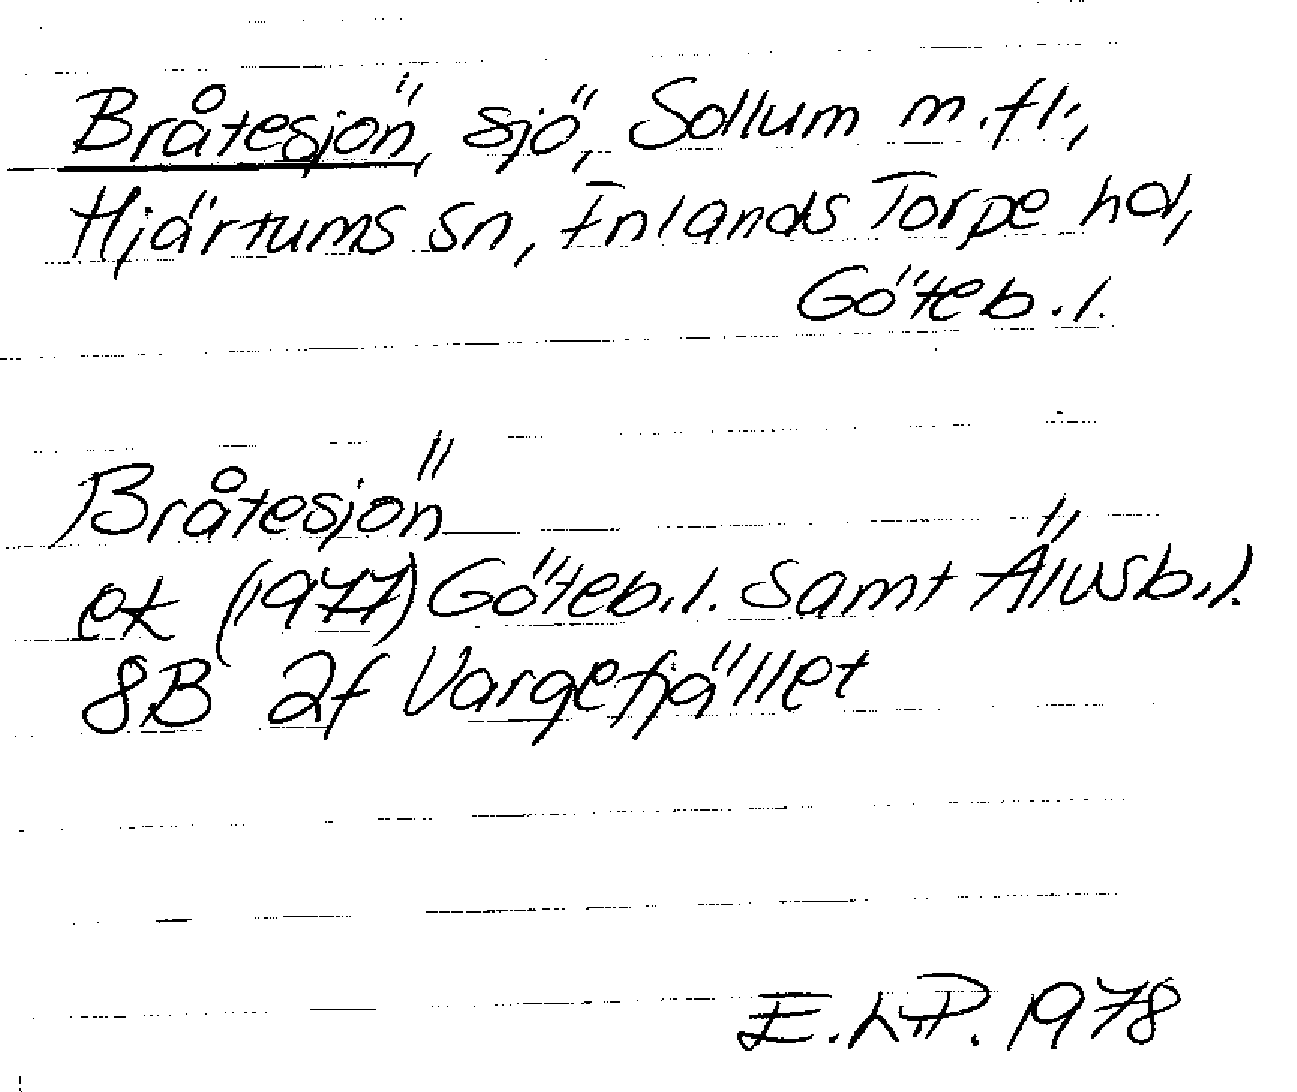 Bråtesjön, sjö, Sollum m.fl.,
Hjärtums sn, Inlands Torpe hd,
Göteb.l.
Bråtesjön
ek (1977) Göteb.l. samt Älvsb.l.
8B 2f Vargefjället
E.LP. 1978